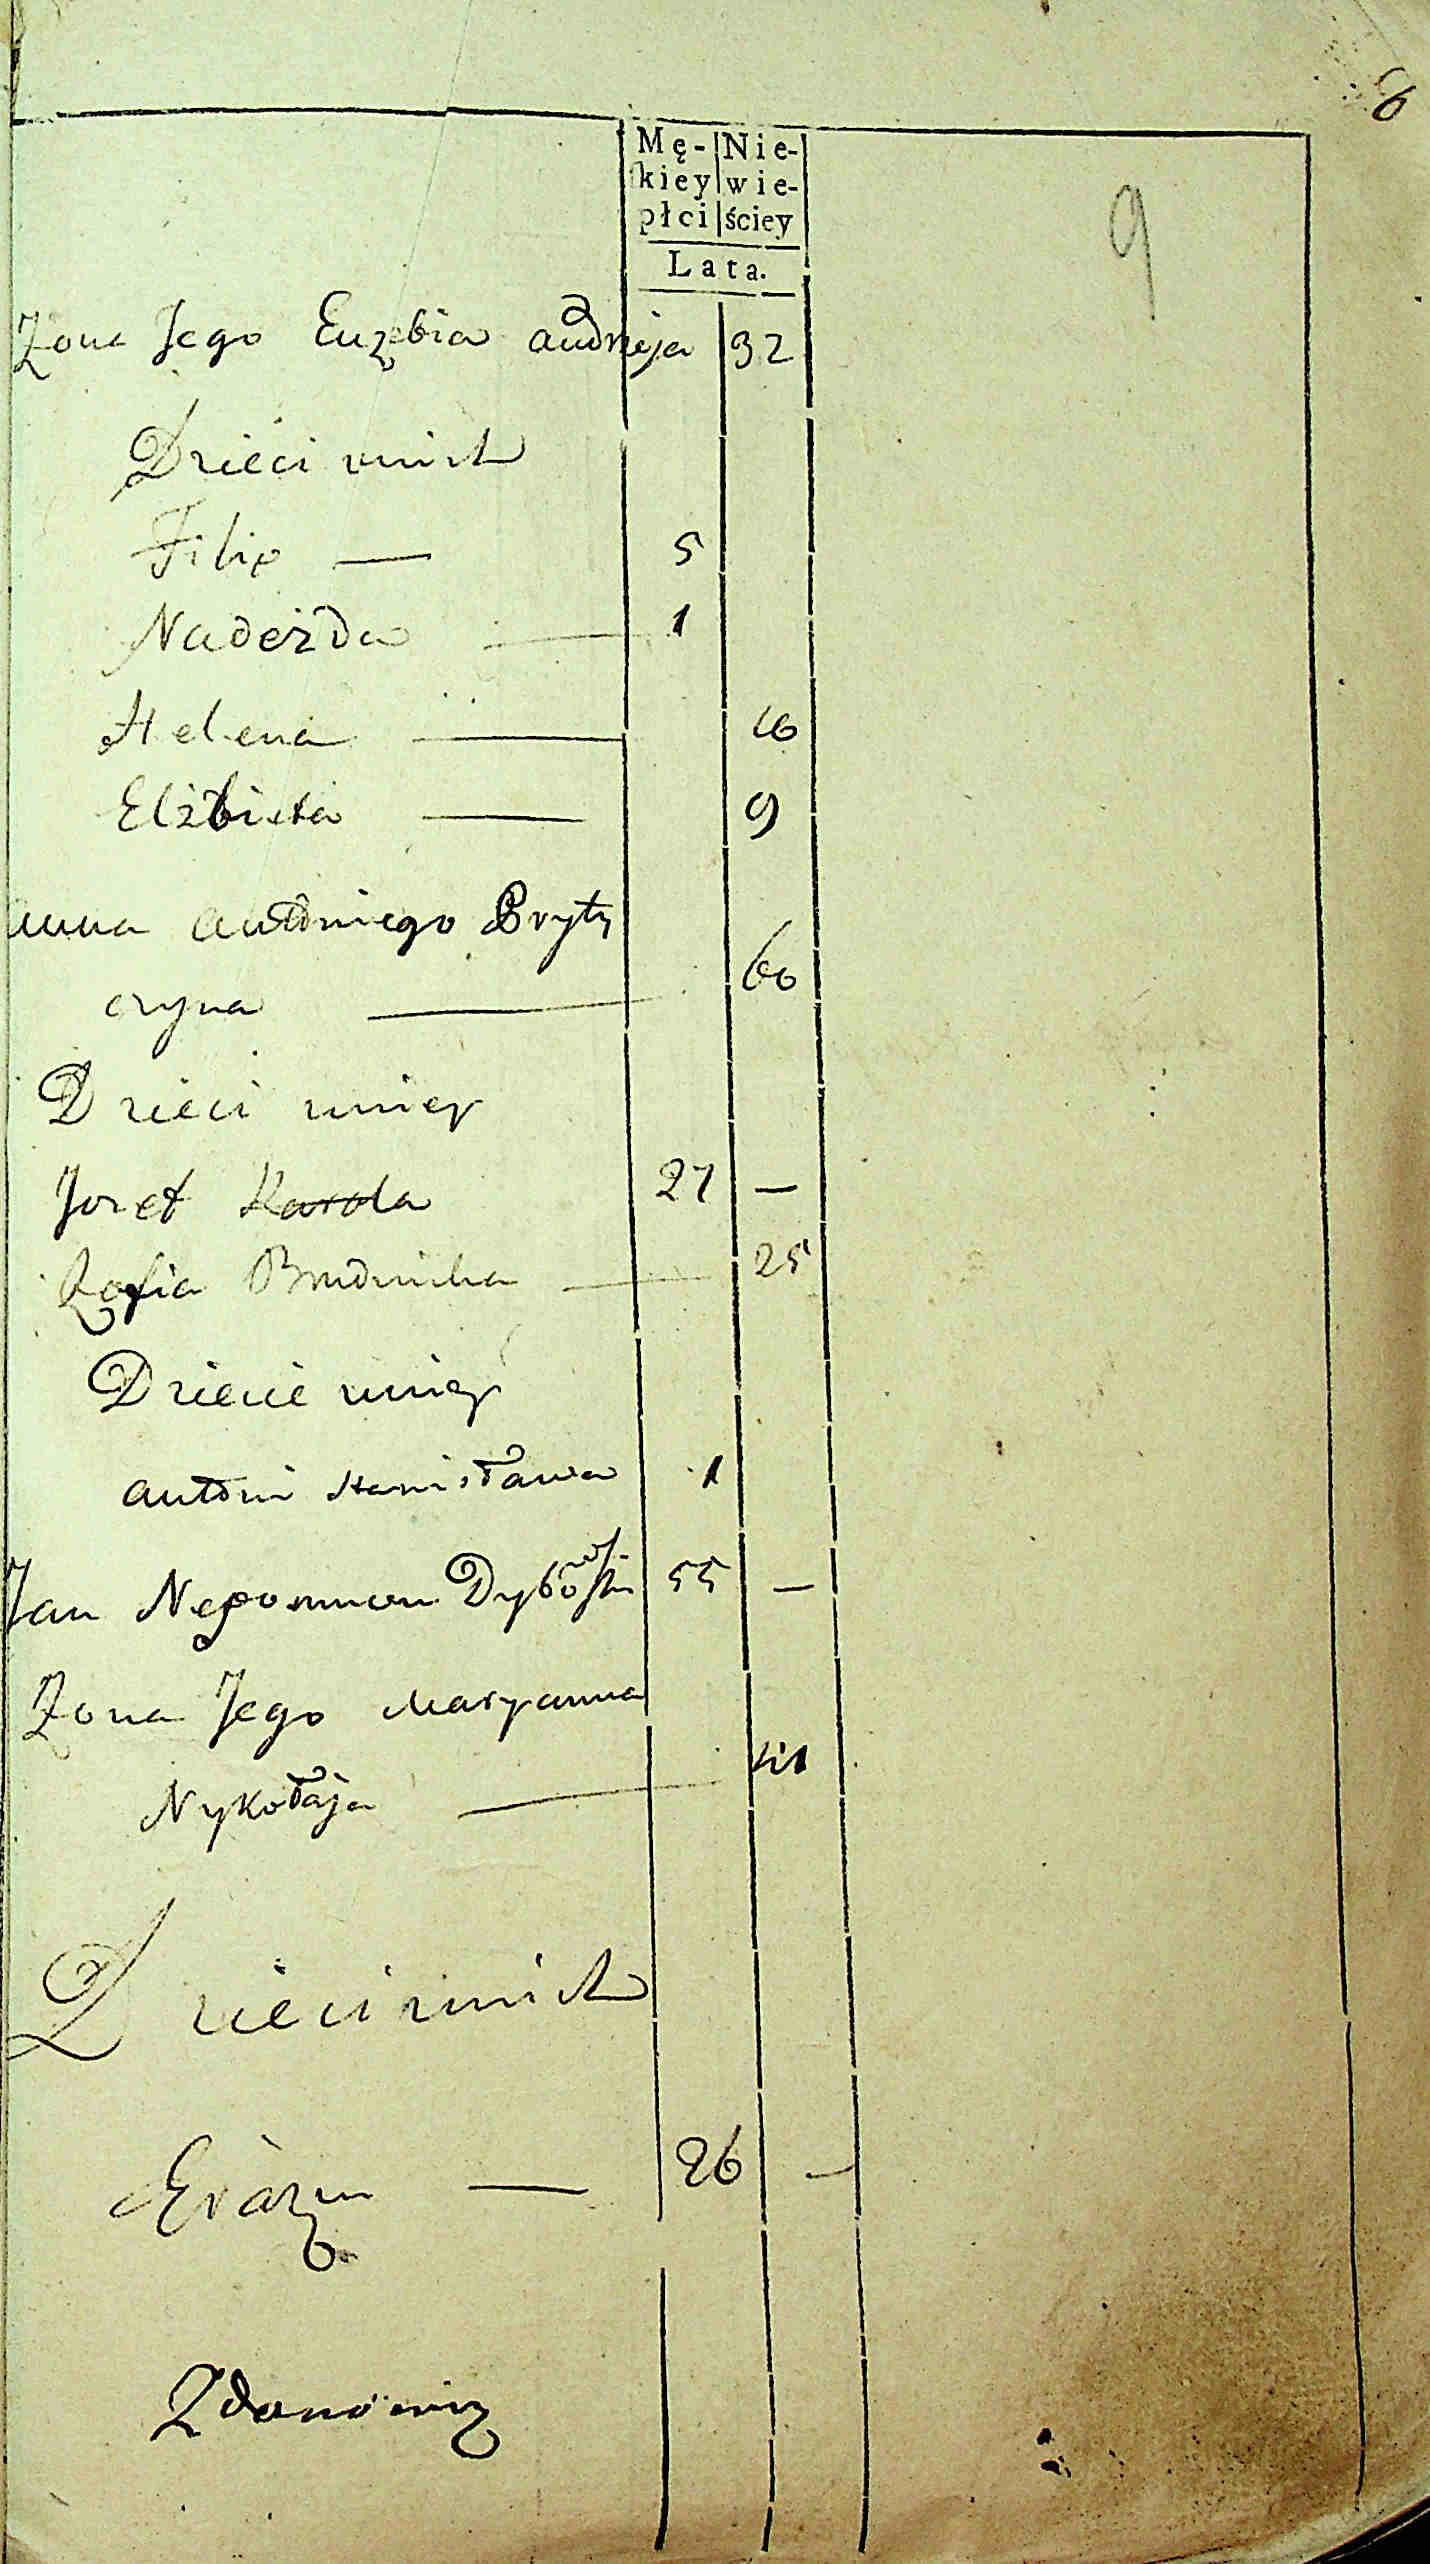 6
Mę- Nie-
skiey wie-
płci ściey
Lata.
9
Żona Jego Euzebia Andrzeja 32
Dzieci unich
Filip — 5
Nadeżda — 1
Helena — 16
Elżbieta — 9
Anna Antoniego Bryty
czyna — 60
Dzieci uniey
Jozef Karola 27 —
Zofia — 25
Dziecie uniey
Antoni Stanisława 1
Jan Nepomucen Dybowski 55 —
Żona Jego Maryanna
Nykołaja — 41
Dzieci unich
Erazm — 26 —
Zdanowicz